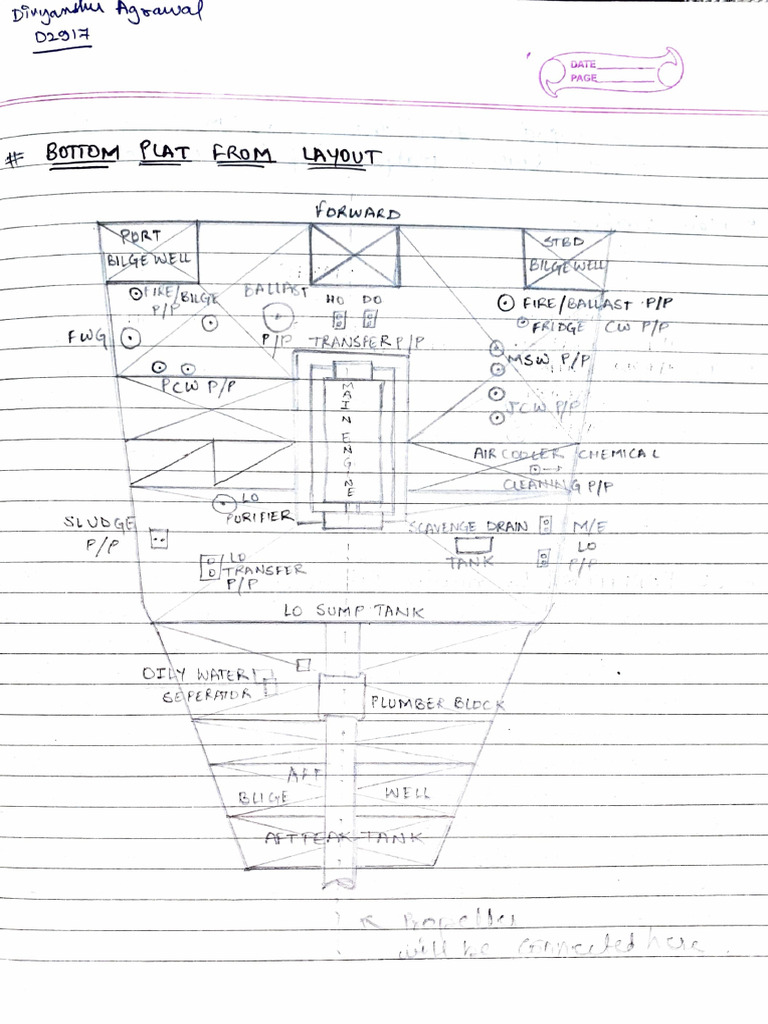 Divyanshu Agrawal
D2917
DATE
PAGE
# BOTTOM PLAT FROM LAYOUT
FORWARD
PORT
BILGE WELL
STBD
BILGE WELL
FIRE/BILGE
P/P
BALLAST
P/P
HO DO
TRANSFER P/P
FIRE/BALLAST P/P
FRIDGE CW P/P
FWG
MSW P/P
PCW P/P
JCW P/P
MAIN ENGINE
AIR COOLER CHEMICAL
CLEANING P/P
LO
PURIFIER
SLUDGE
P/P
SCAVENGE DRAIN
TANK
M/E
LO
P/P
LO
TRANSFER
P/P
LO SUMP TANK
OILY WATER
SEPERATOR
PLUMBER BLOCK
AFT
BLIGE WELL
AFT PEAK TANK
Propeller
will be connected here.